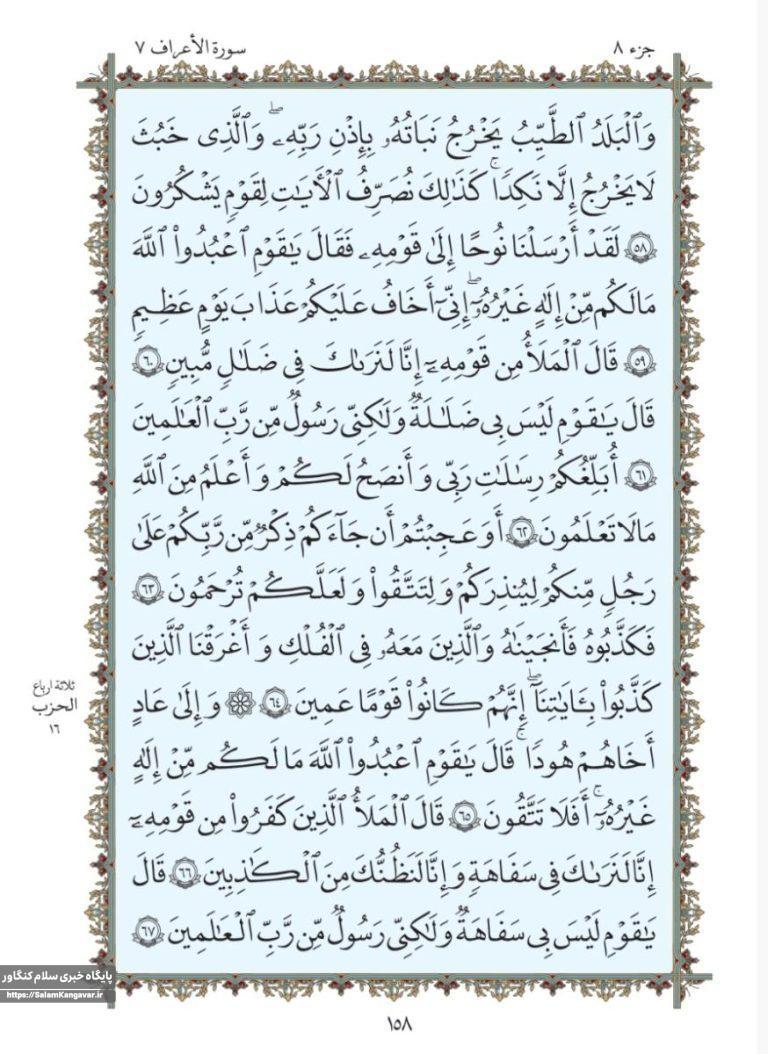 جزء ٨
سورة الأعراف ٧
وَٱلۡبَلَدُ ٱلطَّيِّبُ يَخۡرُجُ نَبَاتُهُۥ بِإِذۡنِ رَبِّهِۦۖ وَٱلَّذِى خَبُثَ
لَا يَخۡرُجُ إِلَّا نَكِدٗاۚ كَذَٰلِكَ نُصَرِّفُ ٱلۡأٓيَٰتِ لِقَوۡمٖ يَشۡكُرُونَ
٥٨ لَقَدۡ أَرۡسَلۡنَا نُوحًا إِلَىٰ قَوۡمِهِۦ فَقَالَ يَٰقَوۡمِ ٱعۡبُدُواْ ٱللَّهَ
مَا لَكُم مِّنۡ إِلَٰهٍ غَيۡرُهُۥٓۖ إِنِّىٓ أَخَافُ عَلَيۡكُمۡ عَذَابَ يَوۡمٍ عَظِيمٖ
٥٩ قَالَ ٱلۡمَلَأُ مِن قَوۡمِهِۦٓ إِنَّا لَنَرَىٰكَ فِى ضَلَٰلٖ مُّبِينٖ ٦٠
قَالَ يَٰقَوۡمِ لَيۡسَ بِى ضَلَٰلَةٞ وَلَٰكِنِّى رَسُولٞ مِّن رَّبِّ ٱلۡعَٰلَمِينَ
٦١ أُبَلِّغُكُمۡ رِسَٰلَٰتِ رَبِّى وَأَنصَحُ لَكُمۡ وَأَعۡلَمُ مِنَ ٱللَّهِ
مَا لَا تَعۡلَمُونَ ٦٢ أَوَعَجِبۡتُمۡ أَن جَآءَكُمۡ ذِكۡرٞ مِّن رَّبِّكُمۡ عَلَىٰ
رَجُلٖ مِّنكُمۡ لِيُنذِرَكُمۡ وَلِتَتَّقُواْ وَلَعَلَّكُمۡ تُرۡحَمُونَ ٦٣
فَكَذَّبُوهُ فَأَنجَيۡنَٰهُ وَٱلَّذِينَ مَعَهُۥ فِى ٱلۡفُلۡكِ وَأَغۡرَقۡنَا ٱلَّذِينَ
كَذَّبُواْ بِـَٔايَٰتِنَآۖ إِنَّهُمۡ كَانُواْ قَوۡمًا عَمِينَ ٦٤ ۞ وَإِلَىٰ عَادٍ
أَخَاهُمۡ هُودٗاۚ قَالَ يَٰقَوۡمِ ٱعۡبُدُواْ ٱللَّهَ مَا لَكُم مِّنۡ إِلَٰهٍ
غَيۡرُهُۥٓۚ أَفَلَا تَتَّقُونَ ٦٥ قَالَ ٱلۡمَلَأُ ٱلَّذِينَ كَفَرُواْ مِن قَوۡمِهِۦٓ
إِنَّا لَنَرَىٰكَ فِى سَفَاهَةٖ وَإِنَّا لَنَظُنُّكَ مِنَ ٱلۡكَٰذِبِينَ ٦٦ قَالَ
يَٰقَوۡمِ لَيۡسَ بِى سَفَاهَةٞ وَلَٰكِنِّى رَسُولٞ مِّن رَّبِّ ٱلۡعَٰلَمِينَ ٦٧
ثلاثة ارباع
الحزب
١٦
پایگاه خبری سلام کنگاور
https://SalamKangavar.ir
١٥٨